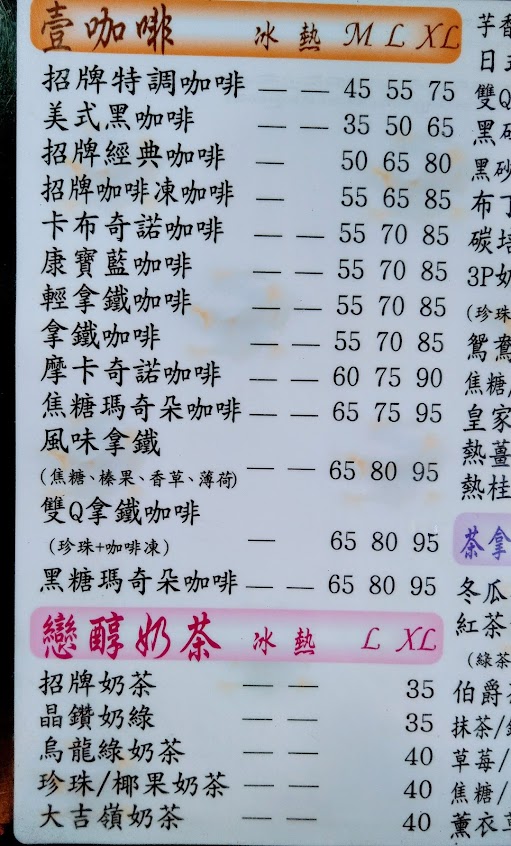 壹咖啡 冰 熱 M L XL
招牌特調咖啡 — — 45 55 75
美式黑咖啡 — — 35 50 65
招牌經典咖啡 — 50 65 80
招牌咖啡凍咖啡 — 55 65 85
卡布奇諾咖啡 — — 55 70 85
康寶藍咖啡 — — 55 70 85
輕拿鐵咖啡 — — 55 70 85
拿鐵咖啡 — — 55 70 85
摩卡奇諾咖啡 — — 60 75 90
焦糖瑪奇朵咖啡 — — 65 75 95
風味拿鐵
(焦糖、榛果、香草、薄荷) — — 65 80 95
雙Q拿鐵咖啡
(珍珠+咖啡凍) — 65 80 95
黑糖瑪奇朵咖啡 — — 65 80 95
戀醇奶茶 冰 熱 L XL
招牌奶茶 — — 35
晶鑽奶綠 — — 35
烏龍綠奶茶 — — 40
珍珠/椰果奶茶 — — 40
大吉嶺奶茶 — — 40
芋香
日式
雙Q
黑砂
布丁
碳培
3P奶
(珍珠
鴛鴦
焦糖/
皇家
熱薑
熱桂
茶拿
冬瓜
紅茶
(綠茶
伯爵
抹茶/
草莓/
焦糖/
薰衣草